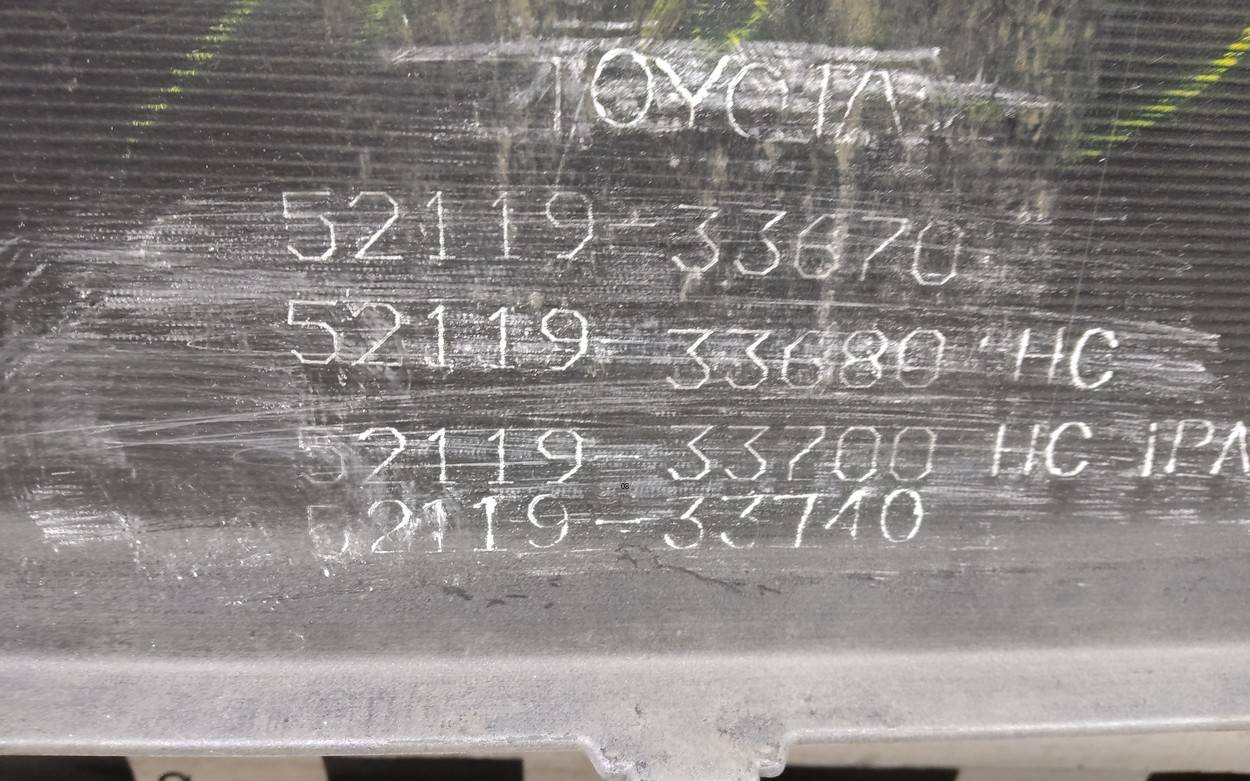 TOYOTA
52119-33670
52119-33680 HC
52119-33700 HC iPA
52119-33740
08